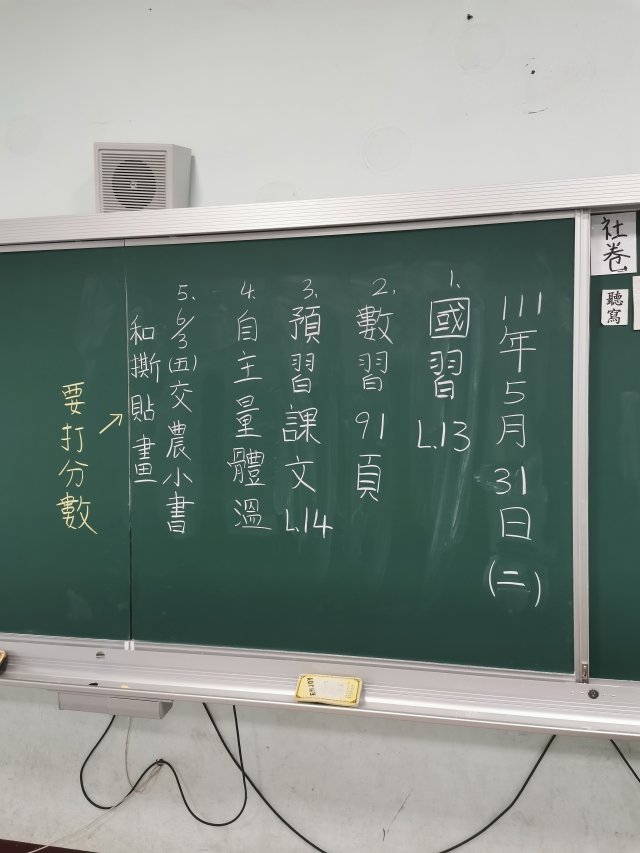 111年5月31日(二)
1.國習L.13
2.數習91頁
3.預習課文L.14
4.自主量體溫
5.6/3(五)交農小書
和撕貼畫
要打分數
社卷
聽寫
ENJOY